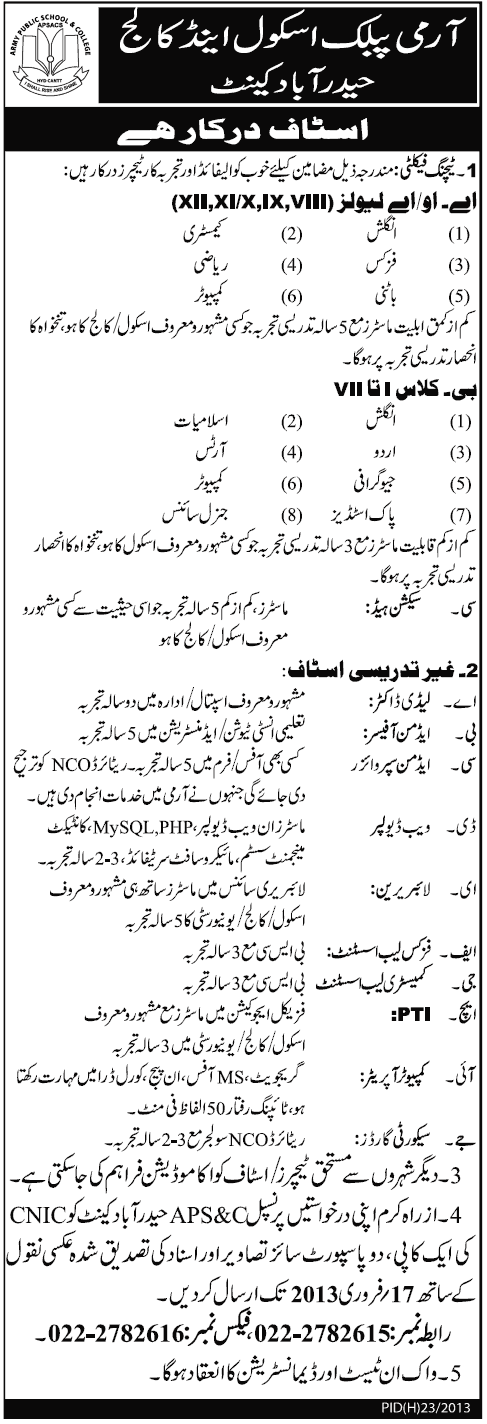 ARMY PUBLIC SCHOOL & COLLEGE
APSACS
HYD-CANTT
I SHALL RISE AND SHINE
آرمی پبلک اسکول اینڈ کالج
حیدرآباد کینٹ
اسٹاف درکار ھے
1۔ ٹیچنگ فیکلٹی: مندرجہ ذیل مضامین کیلئے خوب کوالیفائڈ اور تجربہ کار ٹیچرز درکار ہیں:
اے۔ او/اے لیولز (XII,XI/X,IX,VIII)
(1) انگلش (2) کیمسٹری
(3) فزکس (4) ریاضی
(5) باٹنی (6) کمپیوٹر
کم از کم اہلیت ماسٹرز مع 5 سالہ تدریسی تجربہ جو کسی مشہور و معروف اسکول/کالج کا ہو، تنخواہ کا
انحصار تدریسی تجربہ پر ہوگا۔
بی۔ کلاس I تا VII
(1) انگلش (2) اسلامیات
(3) اردو (4) آرٹس
(5) جیوگرافی (6) کمپیوٹر
(7) پاک اسٹڈیز (8) جنرل سائنس
کم از کم قابلیت ماسٹرز مع 3 سالہ تدریسی تجربہ جو کسی مشہور و معروف اسکول کا ہو، تنخواہ کا انحصار
تدریسی تجربہ پر ہوگا۔
سی۔ سیکشن ہیڈ: ماسٹرز، کم از کم 5 سالہ تجربہ جو اسی حیثیت سے کسی مشہور و
معروف اسکول/کالج کا ہو
2۔ غیر تدریسی اسٹاف:
اے۔ لیڈی ڈاکٹر: مشہور و معروف اسپتال/ادارہ میں دو سالہ تجربہ
بی۔ ایڈمن آفیسر: تعلیمی انسٹی ٹیوشن/ایڈمنسٹریشن میں 5 سالہ تجربہ
سی۔ ایڈمن سپروائزر کسی بھی آفس/فرم میں 5 سالہ تجربہ۔ ریٹائرڈ NCO کو ترجیح
دی جائے گی جنہوں نے آرمی میں خدمات انجام دی ہیں۔
ڈی۔ ویب ڈیولپر ماسٹرز ان ویب ڈیولپر، MySQL,PHP، کانٹیکٹ
مینجمنٹ سسٹم، مائیکروسافٹ سرٹیفائڈ، 3-2 سالہ تجربہ۔
ای۔ لائبریرین: لائبریری سائنس میں ماسٹرز ساتھ ہی مشہور و معروف
اسکول/کالج/یونیورسٹی کا 5 سالہ تجربہ
ایف۔ فزکس لیب اسسٹنٹ: بی ایس سی مع 3 سالہ تجربہ
جی۔ کمیسٹری لیب اسسٹنٹ بی ایس سی مع 3 سالہ تجربہ
ایچ۔ PTI: فزیکل ایجوکیشن میں ماسٹرز مع مشہور و معروف
اسکول/کالج/یونیورسٹی میں 3 سالہ تجربہ
آئی۔ کمپیوٹر آپریٹر: گریجویٹ، MS آفس، ان پیج، کورل ڈرا میں مہارت رکھتا
ہو، ٹائپنگ رفتار 50 الفاظ فی منٹ۔
جے۔ سیکورٹی گارڈز: ریٹائرڈ NCO سولجر مع 3-2 سالہ تجربہ۔
3۔ دیگر شہروں سے مستحق ٹیچرز/اسٹاف کو اکاموڈیشن فراہم کی جاسکتی ہے۔
4۔ از راہ کرم اپنی درخواستیں پرنسپل APS&C حیدرآباد کینٹ کو CNIC
کی ایک کاپی، دو پاسپورٹ سائز تصاویر اور اسناد کی تصدیق شدہ عکسی نقول
کے ساتھ 17/فروری 2013 تک ارسال کردیں۔
رابطہ نمبر: 022-2782615، فیکس نمبر: 022-2782616۔
5۔ واک ان ٹیسٹ اور ڈیمانسٹریشن کا انعقاد ہوگا۔
PID(H)23/2013